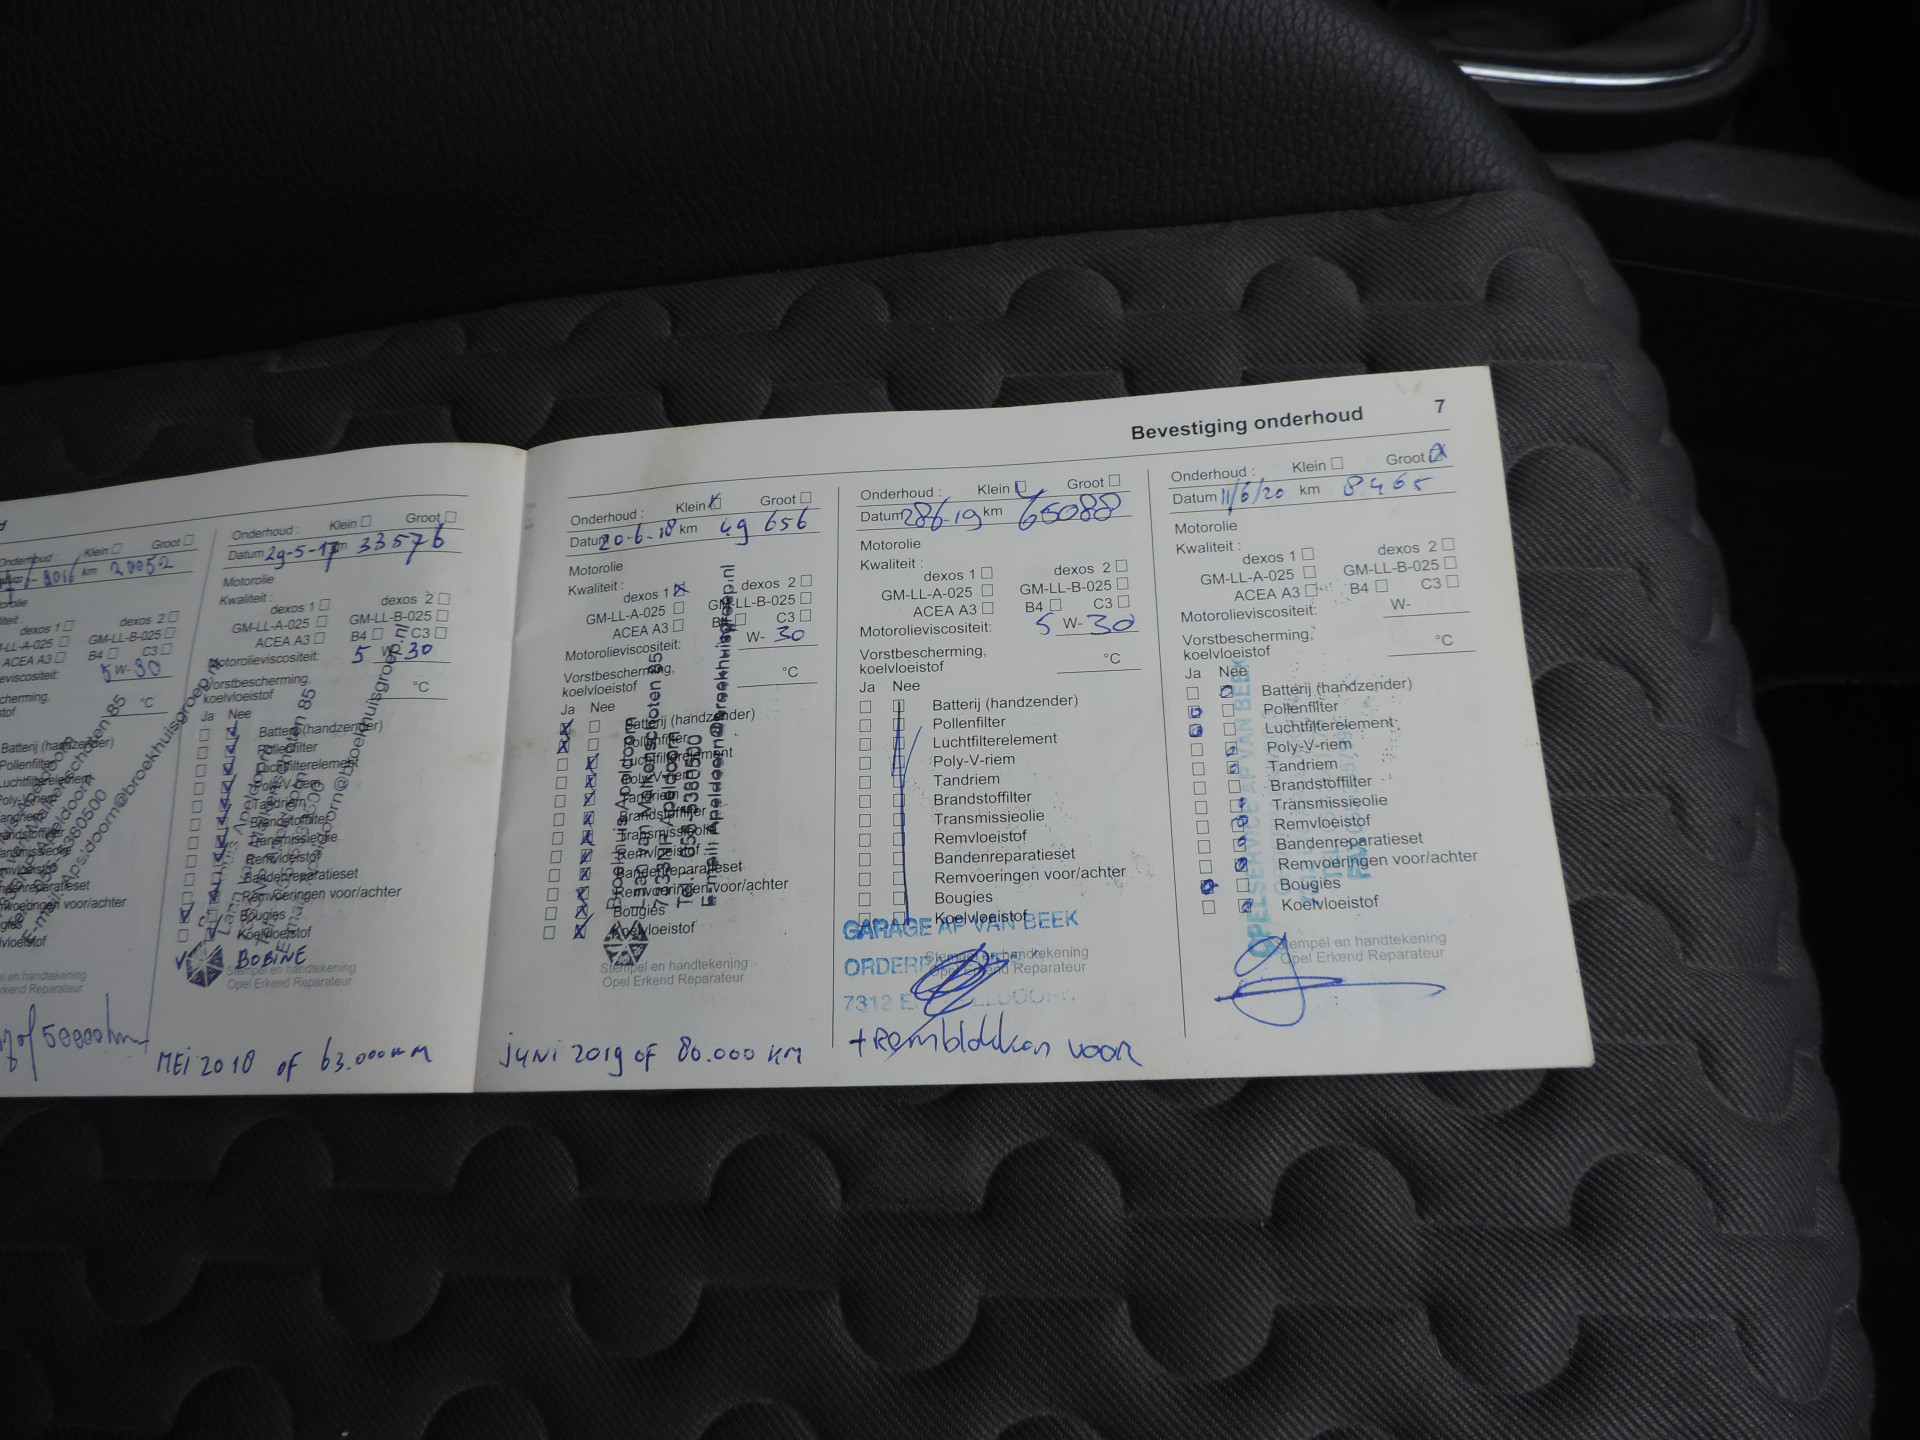 Bevestiging onderhoud 7
Onderhoud : Klein Groot
km 20052
dexos 1 dexos 2
GM-LL-B-025
ACEA A3 B4 C3
5 W- 30
°C
Batterij (handzender)
Pollenfilter
Luchtfilterelement
Poly-V-riem
Bandenreparatieset
Remvoeringen voor/achter
Stempel en handtekening
Erkend Reparateur
of 50000km
Onderhoud : Klein Groot
Datum 29-5-17 km 33576
Motorolie
Kwaliteit :
dexos 1 dexos 2
GM-LL-A-025 GM-LL-B-025
ACEA A3 B4 C3
Motorolieviscositeit: 5 W- 30
Vorstbescherming,
koelvloeistof °C
Ja Nee
Batterij (handzender)
Pollenfilter
Luchtfilterelement
Poly-V-riem
Tandriem
Brandstoffilter
Transmissieolie
Remvloeistof
Bandenreparatieset
Remvoeringen voor/achter
Bougies
Koelvloeistof
BOBINE
Stempel en handtekening
Opel Erkend Reparateur
MEI 2018 OF 63.000 KM
Onderhoud : Klein Groot
Datum 20-6-18 km 49 656
Motorolie
Kwaliteit :
dexos 1 dexos 2
GM-LL-A-025 GM-LL-B-025
ACEA A3 B4 C3
Motorolieviscositeit: W- 30
Vorstbescherming,
koelvloeistof °C
Ja Nee
Batterij (handzender)
Pollenfilter
Luchtfilterelement
Poly-V-riem
Tandriem
Brandstoffilter
Transmissieolie
Remvloeistof
Bandenreparatieset
Remvoeringen voor/achter
Bougies
Koelvloeistof
Broekhuis Apeldoorn
Laan Van Malkenschoten 85
7333NP Apeldoorn
Tel.: 055-5380500
E-mail: Apeldoorn@broekhuisgroep.nl
Stempel en handtekening
Opel Erkend Reparateur
JUNI 2019 OF 80.000 KM
Onderhoud : Klein Groot
Datum 286-19 km 65088
Motorolie
Kwaliteit :
dexos 1 dexos 2
GM-LL-A-025 GM-LL-B-025
ACEA A3 B4 C3
Motorolieviscositeit: 5 W- 30
Vorstbescherming,
koelvloeistof °C
Ja Nee
Batterij (handzender)
Pollenfilter
Luchtfilterelement
Poly-V-riem
Tandriem
Brandstoffilter
Transmissieolie
Remvloeistof
Bandenreparatieset
Remvoeringen voor/achter
Bougies
Koelvloeistof
GARAGE AP VAN BEEK
Stempel en handtekening
Opel Erkend Reparateur
7312
+ remblokken voor
Onderhoud : Klein Groot
Datum 11/6/20 km 8465
Motorolie
Kwaliteit :
dexos 1 dexos 2
GM-LL-A-025 GM-LL-B-025
ACEA A3 B4 C3
Motorolieviscositeit: W-
Vorstbescherming,
koelvloeistof °C
Ja Nee
Batterij (handzender)
Pollenfilter
Luchtfilterelement
Poly-V-riem
Tandriem
Brandstoffilter
Transmissieolie
Remvloeistof
Bandenreparatieset
Remvoeringen voor/achter
Bougies
Koelvloeistof
OPELSERVICE AP VAN BEEK
Stempel en handtekening
Opel Erkend Reparateur